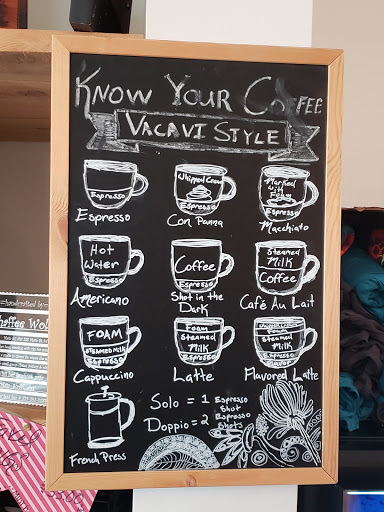 KNOW YOUR COFFEE
VACAVI STYLE
Espresso
Espresso
Whipped Cream
Espresso
Con Panna
Marked
with
Foam
Espresso
Macchiato
Hot
Water
Espresso
Americano
Coffee
Espresso
Shot in the
Dark
Steamed
Milk
Coffee
Café Au Lait
FOAM
STEAMED MILK
Espresso
Cappuccino
Foam
Steamed
Milk
Espresso
Latte
Foam
Steamed
Milk
Espresso
Flavored Latte
French Press
Solo = 1 Espresso Shot
Doppio = 2 Espresso Shots